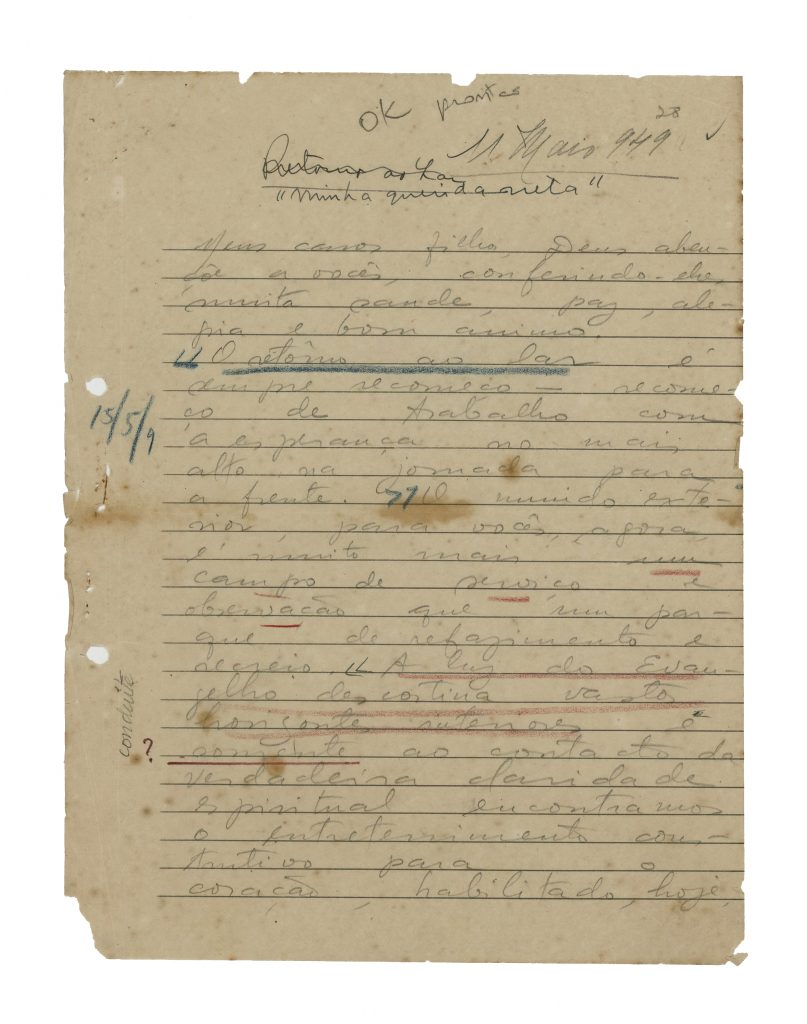 OK prontas
28
11 Maio 949
Retorno ao Lar
"Minha querida neta"
Meus caros filho, Deus aben-
çôe a vocês, conferindo-lhe,
muita saude, paz, ale-
gria e bom ânimo.
"O retôrno ao lar é
sempre recomeço — recome-
ço de trabalho com
a esperança no mais
alto na jornada para
a frente. " O mundo exte-
rior, para vocês, agora,
é muito mais um
campo de serviço e
observação que um par-
que de refazimento e
recreio. " A luz do Evan-
gelho descortina vasto,
horizontes interiores e
somente ao contacto da
verdadeira claridade
espiritual encontramos
o entretenimento cons-
trutivo para o
coração, habilitado, hoje,
15/5/9
conduite
?